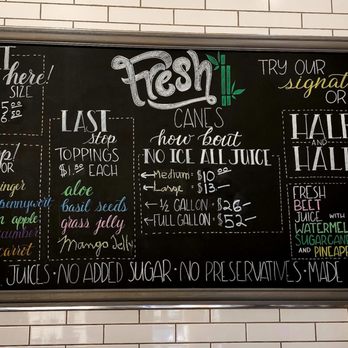 Fresh
CANES
here!
SIZE
OR
LAST
stop
TOPPINGS
$1.55 EACH
aloe
basil seeds
grass jelly
Mango Jelly
how bout
NO ICE ALL JUICE
Medium: $10.00
Large = $13—
½ GALLON = $26—
FULL GALLON: $52—
TRY OUR
signat
OR
HALF
AND
HALF
FRESH
BEET
JUICE WITH
WATERMEL
SUGARCANE
AND PINEAPP
JUICES · NO ADDED SUGAR · NO PRESERVATIVES · MADE